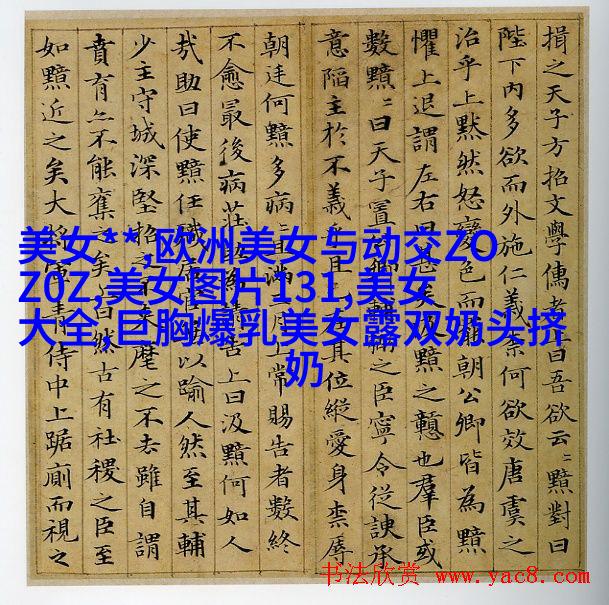 揖之天子方招文學儒者上曰吾欲云〻黯對曰
陛下內多欲而外施仁義柰何欲效唐虞之
治乎上默然怒變色而罷朝公卿皆為黯
懼上退謂左右曰甚矣黯之戇也羣臣或
數黯〻曰天子置公卿輔弼之臣寧令從諛承
意陷主於不義乎且已在其位縱愛身柰辱
朝廷何黯多病〻且滿三月上常賜告者數終
不愈最後病莊助為請告上曰汲黯何如人
㢤助曰使黯任職居官無以踰人然至其輔
少主守城深堅招之不來麾之不去雖自謂
賁育亦不能奪之矣上曰然古有社稷之臣至
如黯近之矣大將軍青侍中上踞廁而視之
美女**,欧洲美女与动交ZO
Z0Z,美女图片131,美女
大全,巨胸爆乳美女露双奶头挤
奶
书法欣赏 www.yac8.com